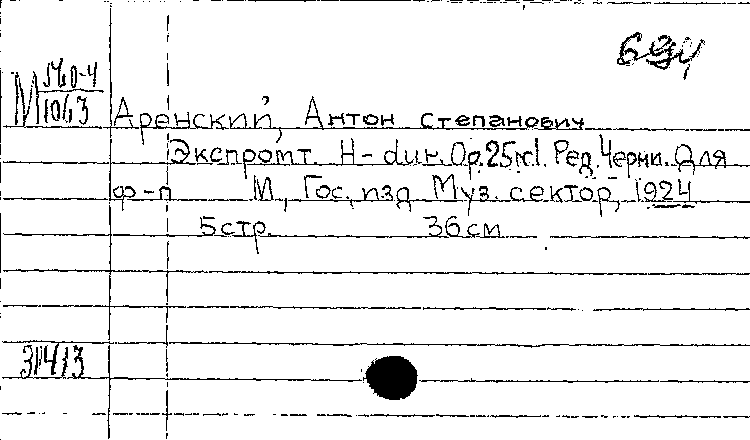 694
М 560-4
1063
Аренский, Антон Степанович
Экспромт. H-dur. Op. 25 №1. Ред. Черни. Для
ф-п М., Гос. изд. Муз. сектор, 1924
5 стр. 36 см
31413